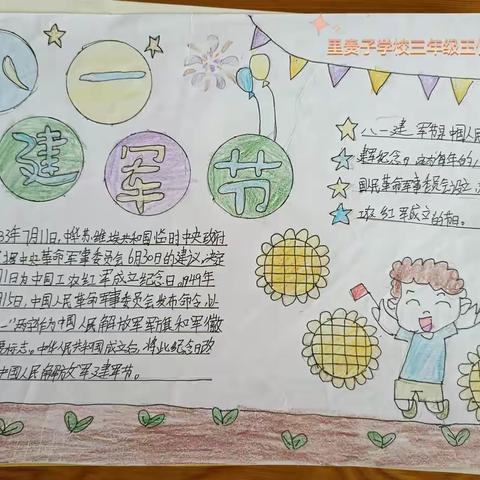 里奏子学校三年级王
八一
建军节
八一建军节是中国人民
建军纪念日,
国民革命军事委员会设立,
工农红军成立的
3年7月11日,中华苏维埃共和国临时中央政府
中央革命军事委员会6月30日的建议,决定
1日为中国工农红军成立纪念日。1949年
月15日,中国人民革命军事委员会发布命令,以
一"两字作为中国人民解放军军旗和军徽
要标志。中华人民共和国成立后,将此纪念日改
中国人民解放军建军节。